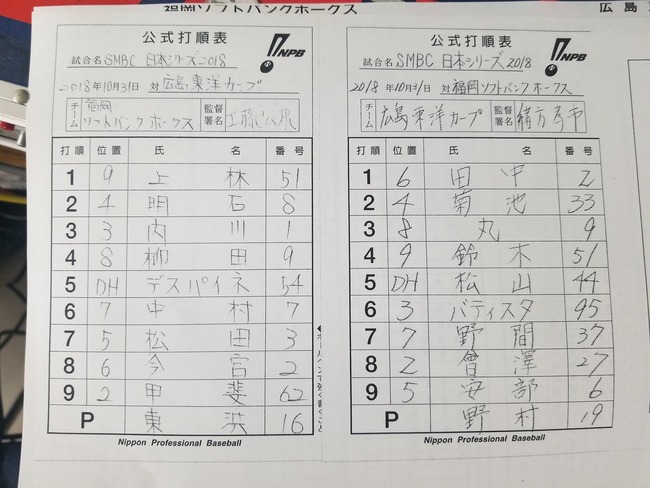 福岡ソフトバンクホークス
広島
公式打順表
NPB
試合名 SMBC 日本シリーズ2018
2018年10月31日 対 広島東洋カープ
チーム 福岡ソフトバンクホークス 監督署名 工藤公康
打順 位置 氏 名 番号
1 9 上林 51
2 4 明石 8
3 3 内川 1
4 8 柳田 9
5 DH デスパイネ 54
6 7 中村 7
7 5 松田 3
8 6 今宮 2
9 2 甲斐 62
P 東浜 16
Nippon Professional Baseball
公式打順表
NPB
試合名 SMBC 日本シリーズ2018
2018年10月31日 対 福岡ソフトバンクホークス
チーム 広島東洋カープ 監督署名 緒方孝市
打順 位置 氏 名 番号
1 6 田中 2
2 4 菊池 33
3 8 丸 9
4 9 鈴木 51
5 DH 松山 44
6 3 バティスタ 95
7 7 野間 37
8 2 會澤 27
9 5 安部 6
P 野村 19
Nippon Professional Baseball